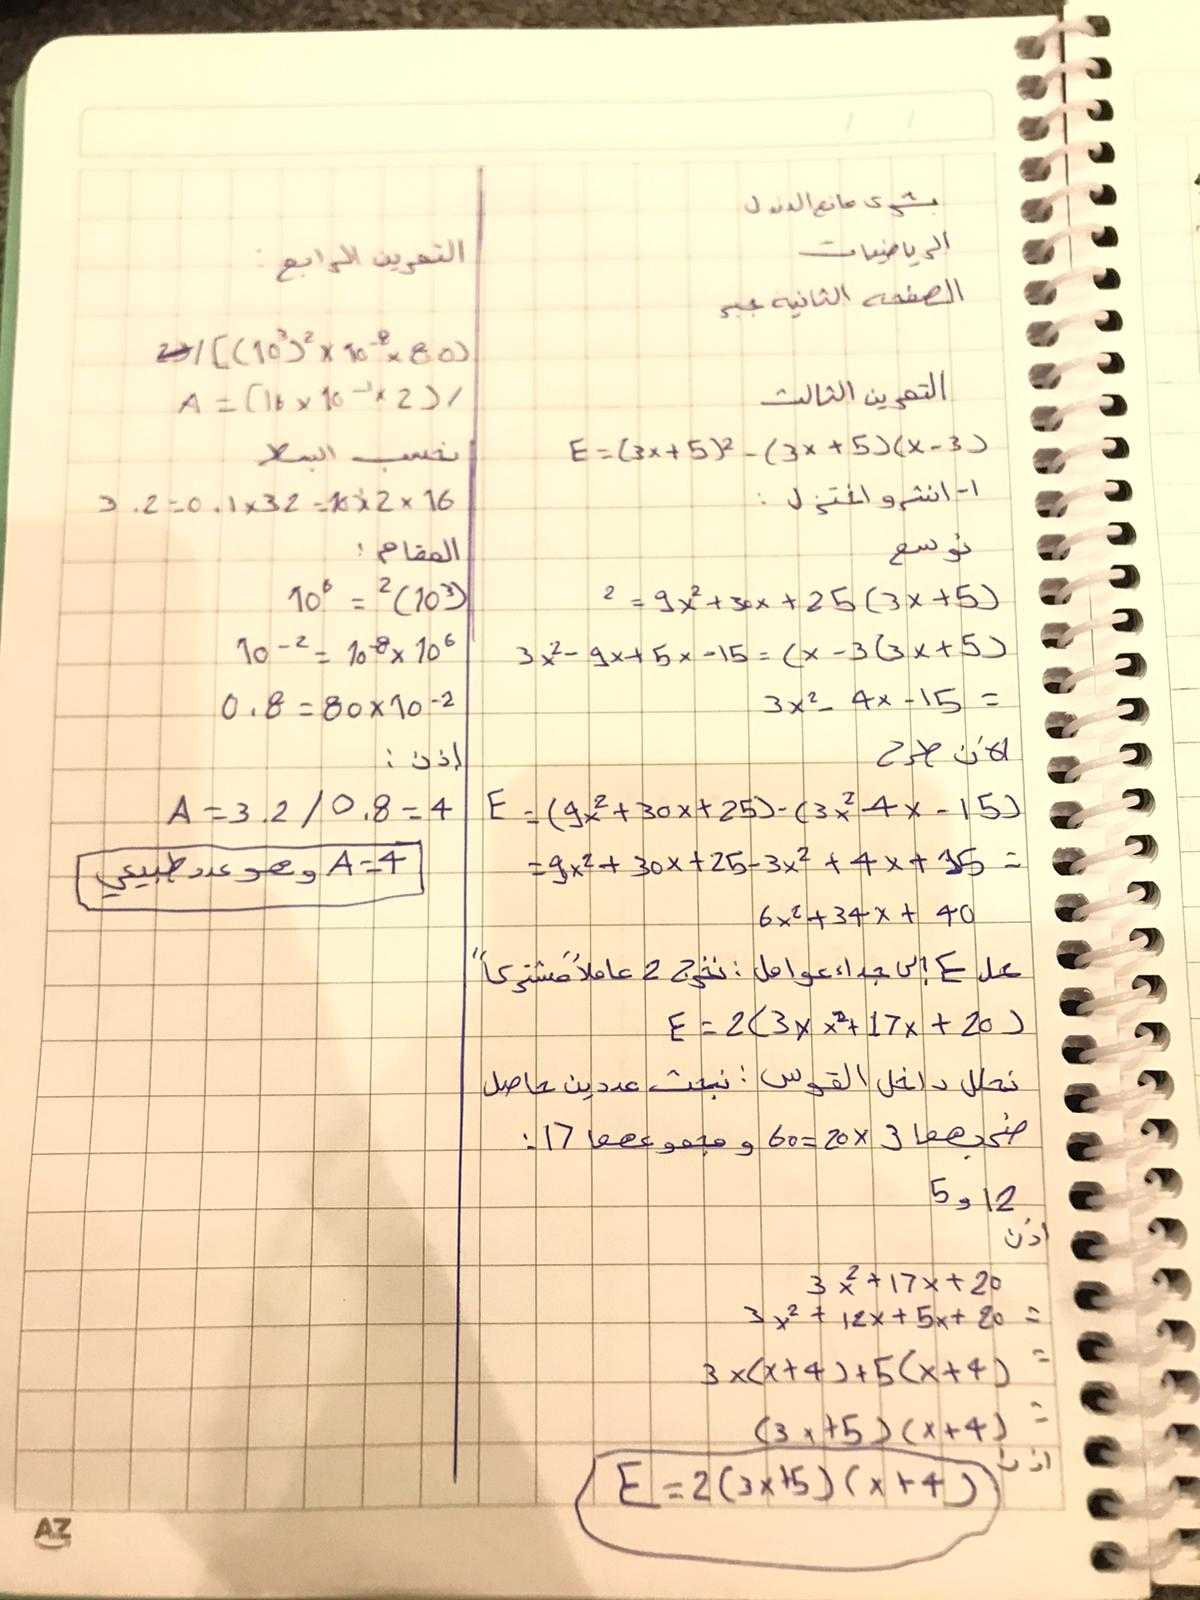 بشرى مانع الدندل
الرياضيات
الصفحه الثانيه جبر
التمرين الثالث
E = (3x+5)² - (3x+5)(x-3)
1- انشر و اختزل :
نوسع
² = 9x²+30x+25 (3x+5)
3x²-9x+5x-15 = (x-3(3x+5)
3x²-4x-15 =
الآن طرح
E = (9x²+30x+25)-(3x²-4x-15)
=9x²+30x+25-3x²+4x+15 =
6x²+34x+40
حلل E إلى جداء عوامل : نخرج 2 عاملاً "مشتركاً"
E = 2(3x x²+17x+20)
نحلل داخل القوس : نبحث عددين حاصل
ضربهما 3 ×20=60 و مجموعهما 17 :
12 و 5
اذن
3x²+17x+20
3x²+12x+5x+20 =
3x(x+4)+5(x+4) =
(3x+5)(x+4) =
اذن
E = 2(3x+5)(x+4)
التمرين الرابع :
/[(10³)²×10⁻⁸×80)
A = (16×10⁻¹×2)/
نحسب البسط
3.2=0.1×32=10⁻¹×2×16
المقام :
10⁶ = ²(10³)
10⁻² = 10⁻⁸×10⁶
0.8 = 80×10⁻²
إذن :
A = 3.2/0.8 = 4
A=4 وهو عدد طبيعي
AZ